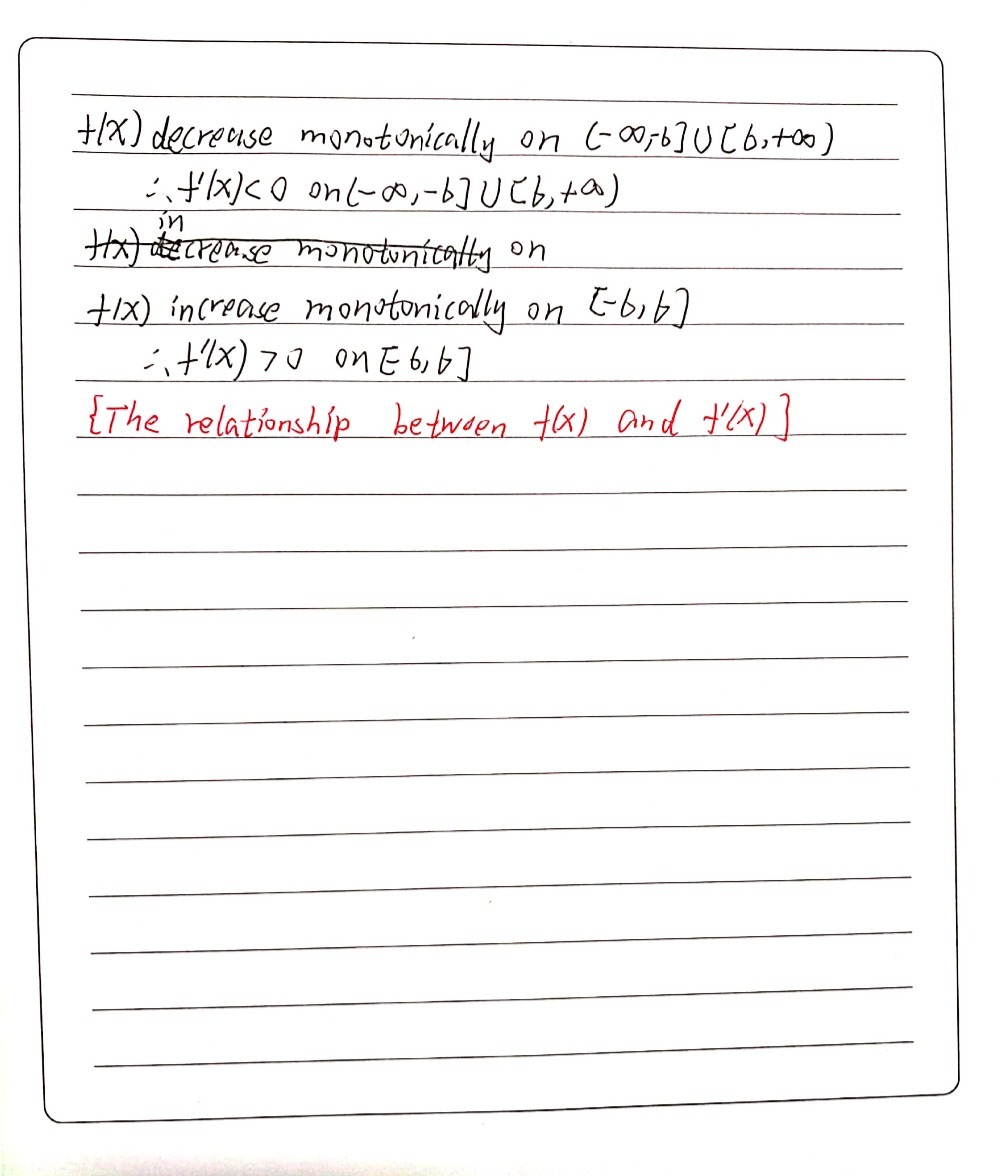 f(x) decrease monotonically on (-∞,-b]∪[b,+∞)
∴ f'(x)<0 on(-∞,-b]∪[b,+∞)
in
f(x) decrease monotonically on
f(x) increase monotonically on [-b,b]
∴ f'(x) >0 on[-b,b]
{The relationship between f(x) and f'(x)]